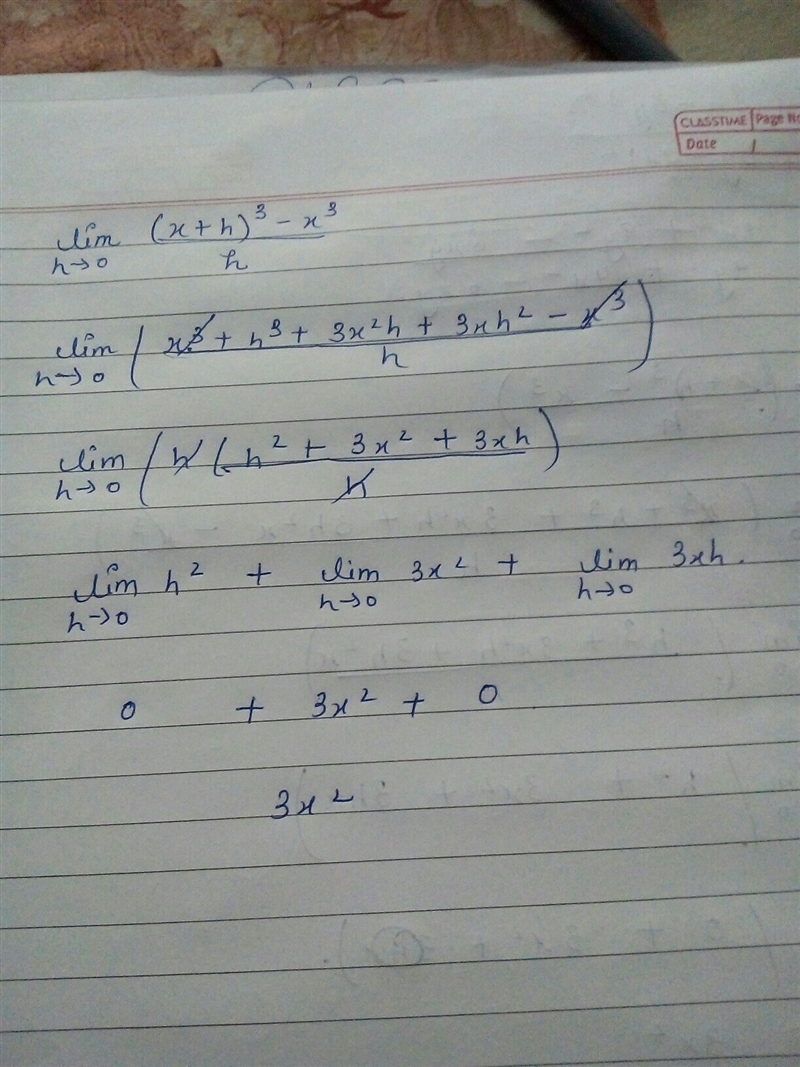 CLASSTIME Page No
Date /
lim h→0 (x+h)³ - x³ / h
lim h→0 ( x³ + h³ + 3x²h + 3xh² - x³ / h )
lim h→0 ( h ( h² + 3x² + 3xh / h )
lim h→0 h² + lim h→0 3x² + lim h→0 3xh.
0 + 3x² + 0
3x²